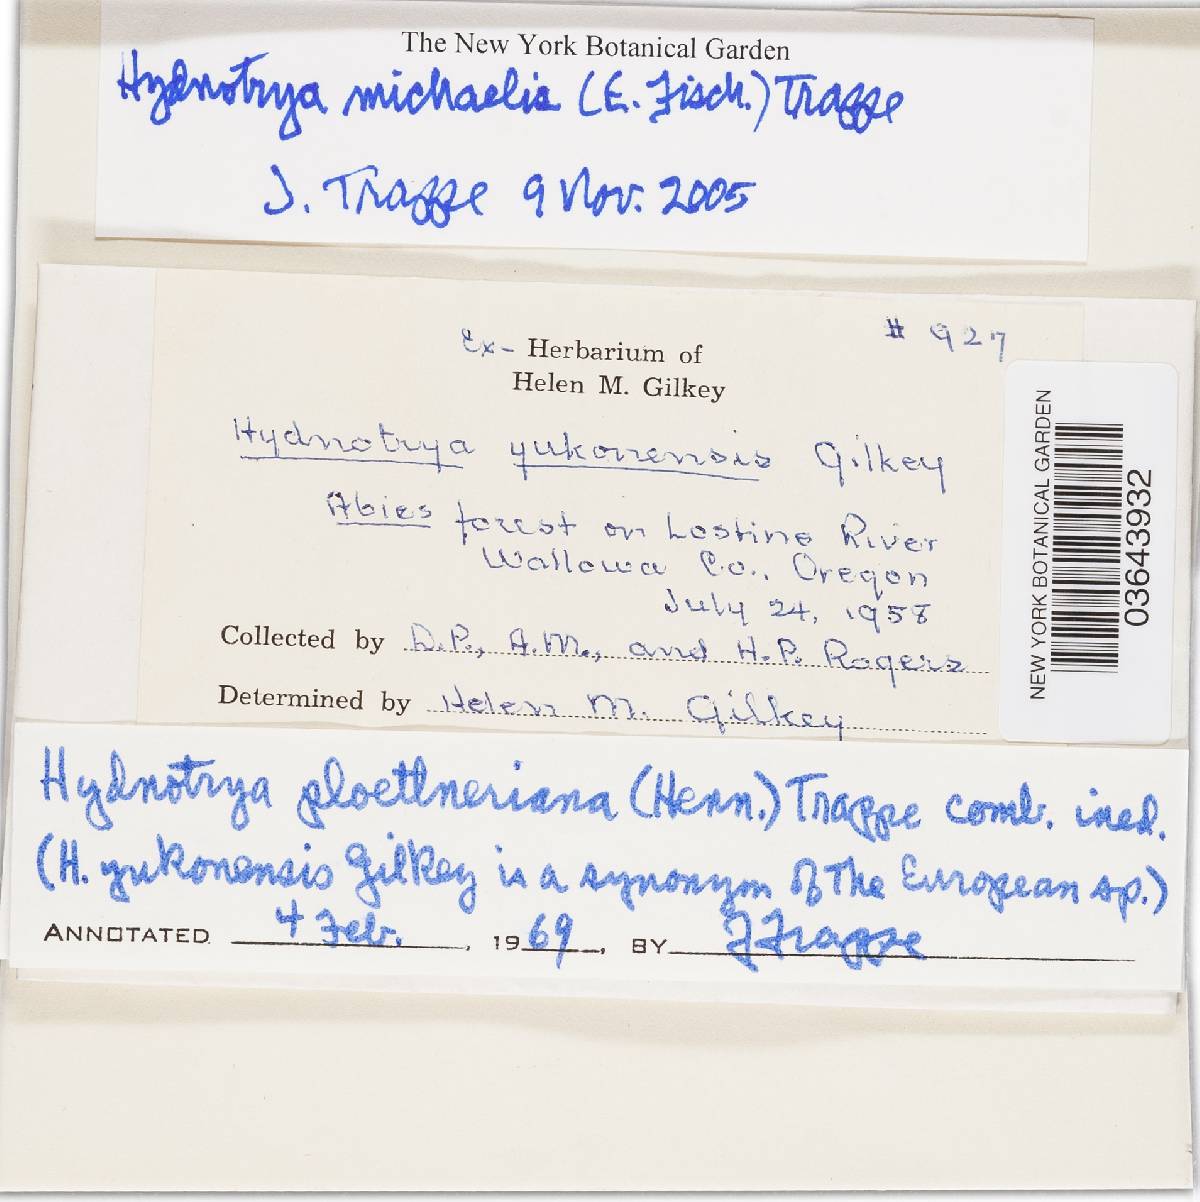 The New York Botanical Garden
Hydnotrya michaelis (E. Fisch.) Trappe
J. Trappe 9 Nov. 2005
# 927
Ex- Herbarium of
Helen M. Gilkey
Hydnotrya yukonensis Gilkey
Abies forest on Lostine River
Wallowa Co., Oregon
July 24, 1958
Collected by D.P., A.M., and H.P. Rogers
Determined by Helen M. Gilkey
NEW YORK BOTANICAL GARDEN
03643932
Hydnotrya ploettneriana (Henn.) Trappe comb. ined.
(H. yukonensis Gilkey is a synonym of the European sp.)
ANNOTATED 4 Feb., 1969, BY J Trappe